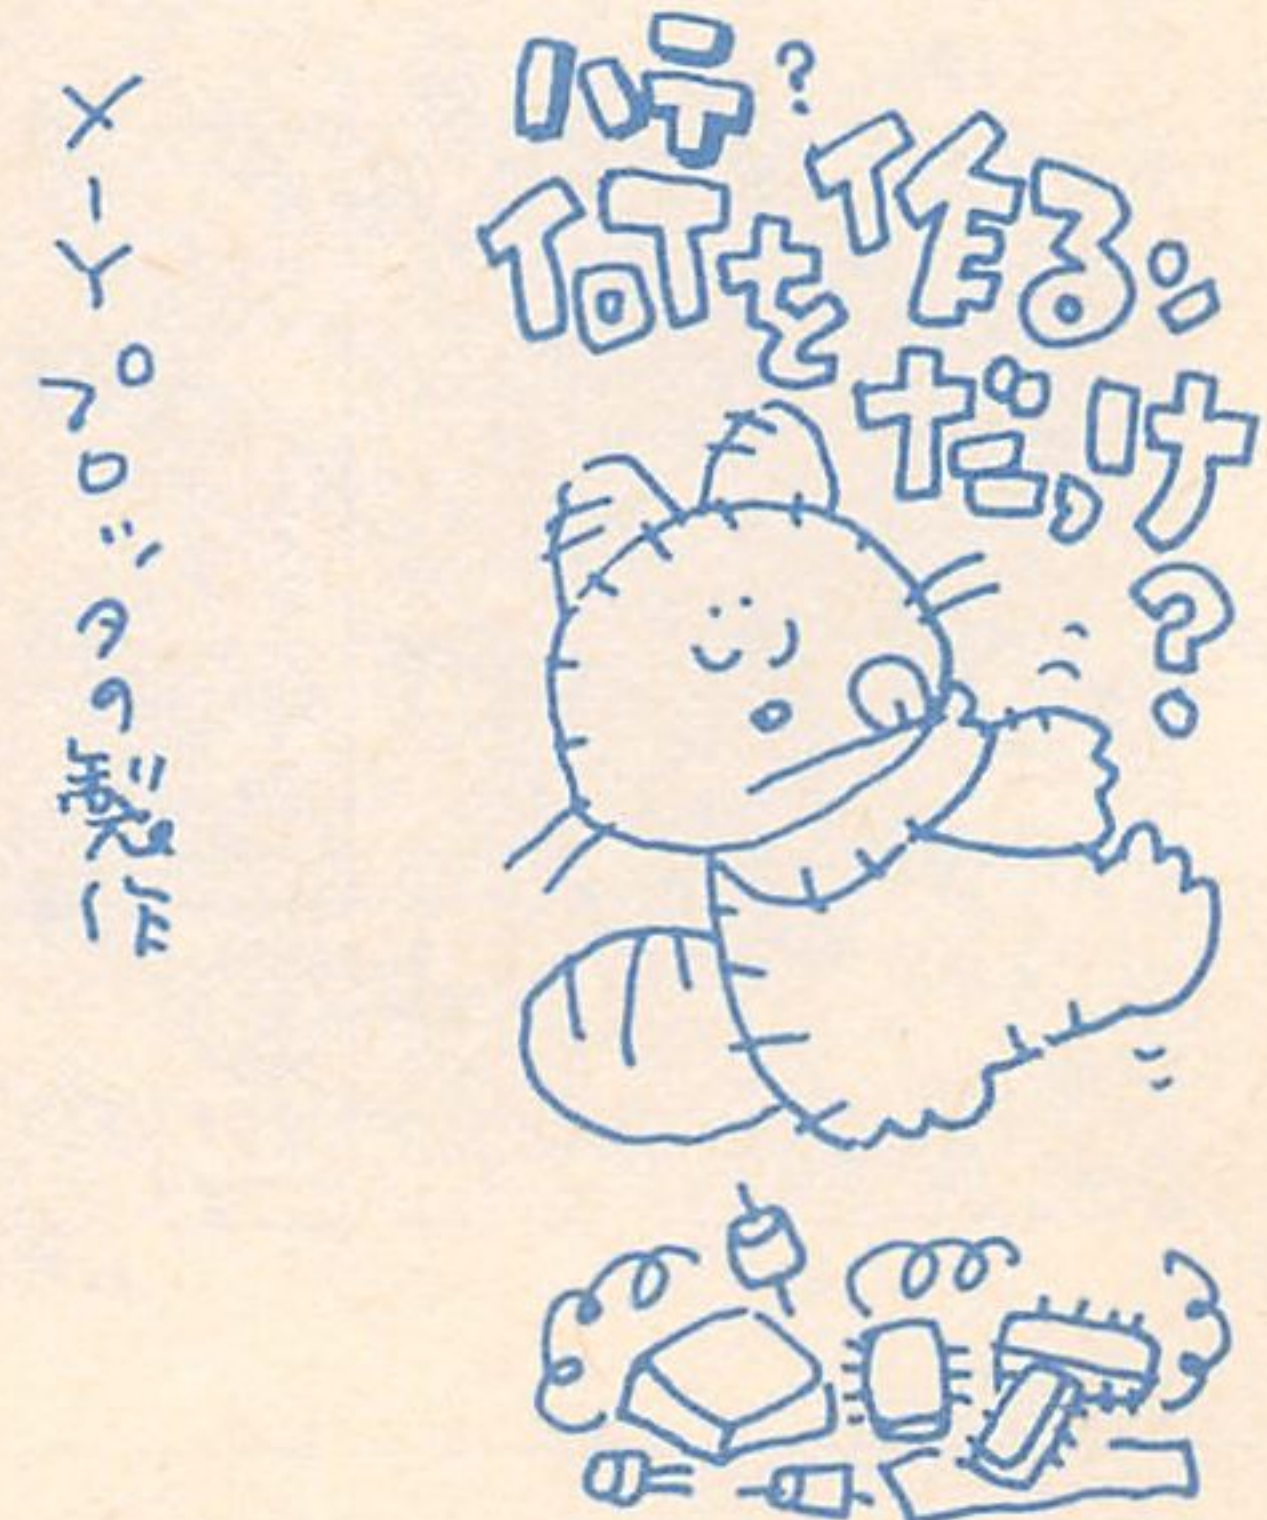 ハテ?
何を作るン
だっけ?
X-Yプロッタの製作